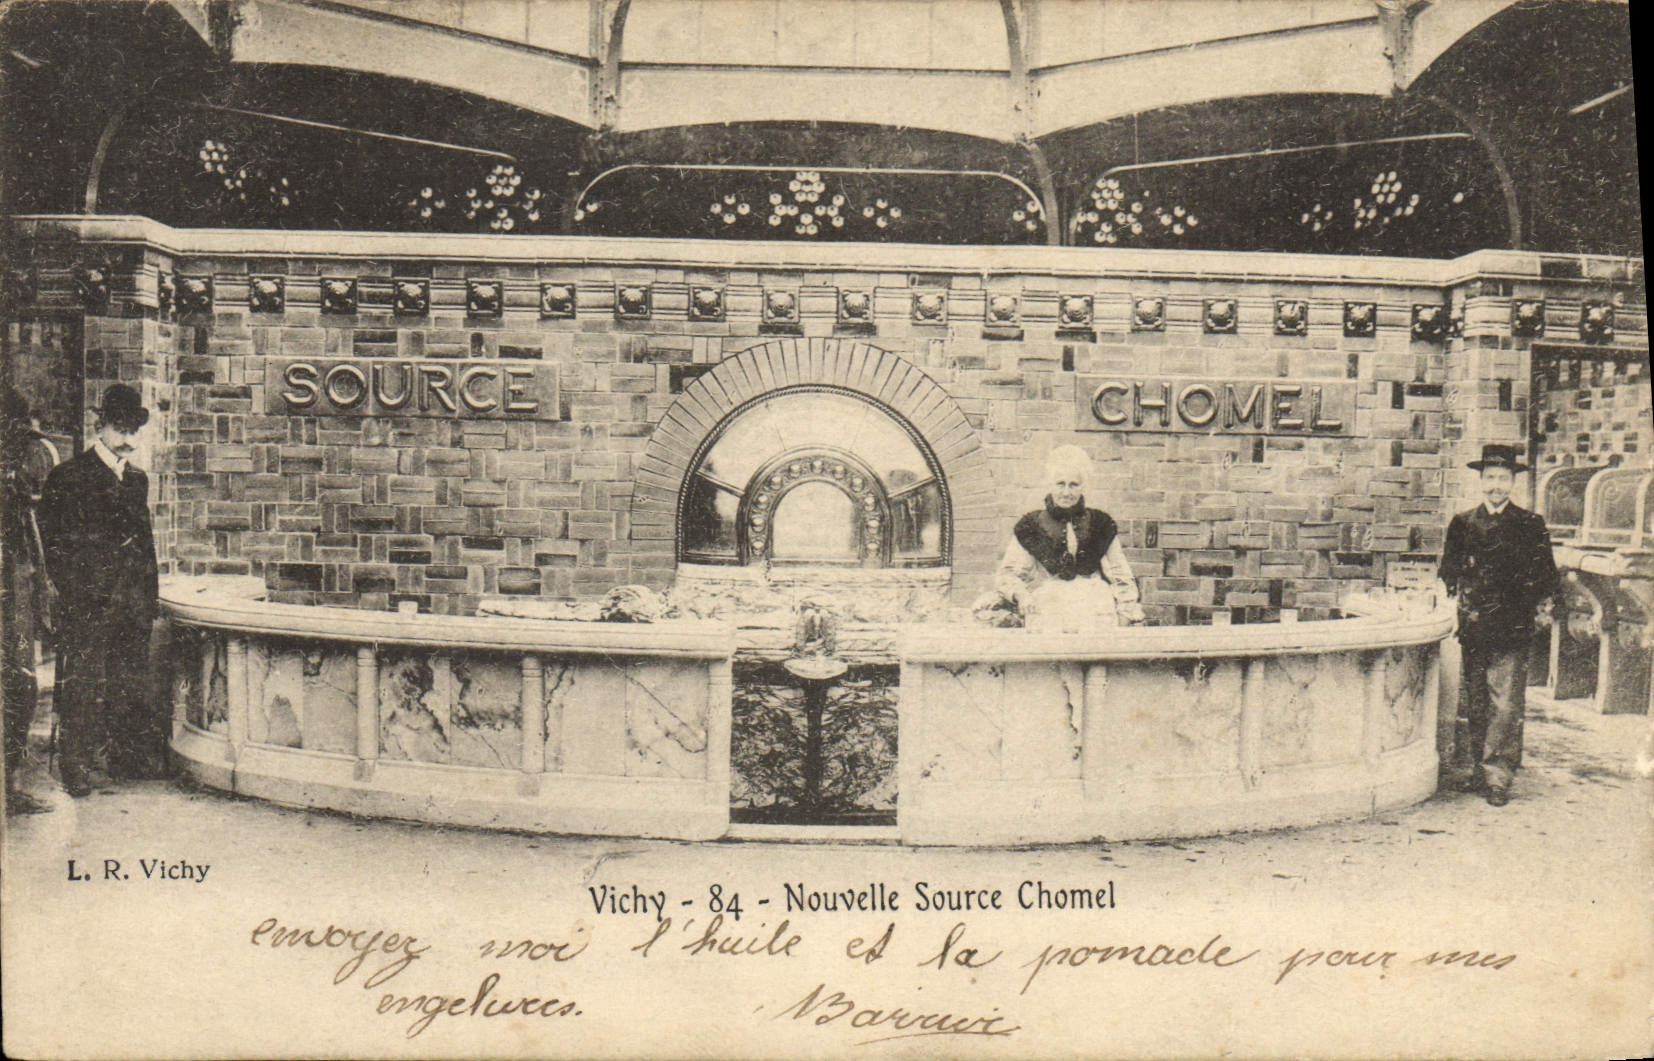 SOURCE
CHOMEL
L. R. Vichy
Vichy - 84 - Nouvelle Source Chomel
envoyez moi l'huile et la pomade pour mes
engelures.